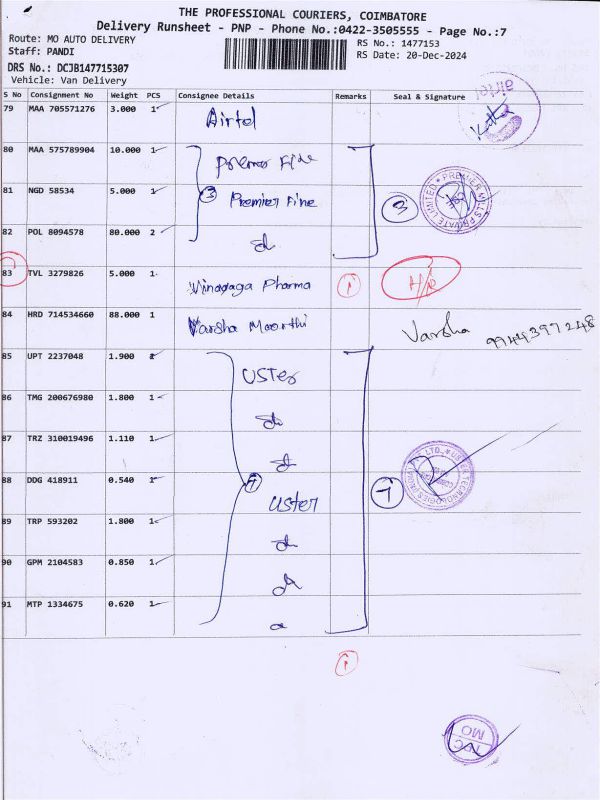 THE PROFESSIONAL COURIERS, COIMBATORE
Delivery Runsheet - PNP - Phone No.:0422-3505555 - Page No.:7
Route: MO AUTO DELIVERY
RS No.: 1477153
Staff: PANDI
RS Date: 20-Dec-2024
DRS No.: DCJB147715307
Vehicle: Van Delivery
S No Consignment No Weight PCS Consignee Details Remarks Seal & Signature
79 MAA 705571276 3.000 1 Airtel airtel
80 MAA 575789904 10.000 1 Premier Fine
81 NGD 58534 5.000 1 3 Premier Fine 3 PREMIER MILLS PRIVATE LIMITED
82 POL 8094578 80.000 2 d
83 TVL 3279826 5.000 1 Vinayaga Pharma 1
84 HRD 714534660 88.000 1 Varsha Moorthi Varsha 9944397248
85 UPT 2237048 1.900 USTer
86 TMG 200676980 1.800 1 do
87 TRZ 310019496 1.110 1 d
88 DDG 418911 0.540 1 7 Uster 7
89 TRP 593202 1.800 1 d
90 GPM 2104583 0.850 1 do
91 MTP 1334675 0.620 1
1
TPC
MO